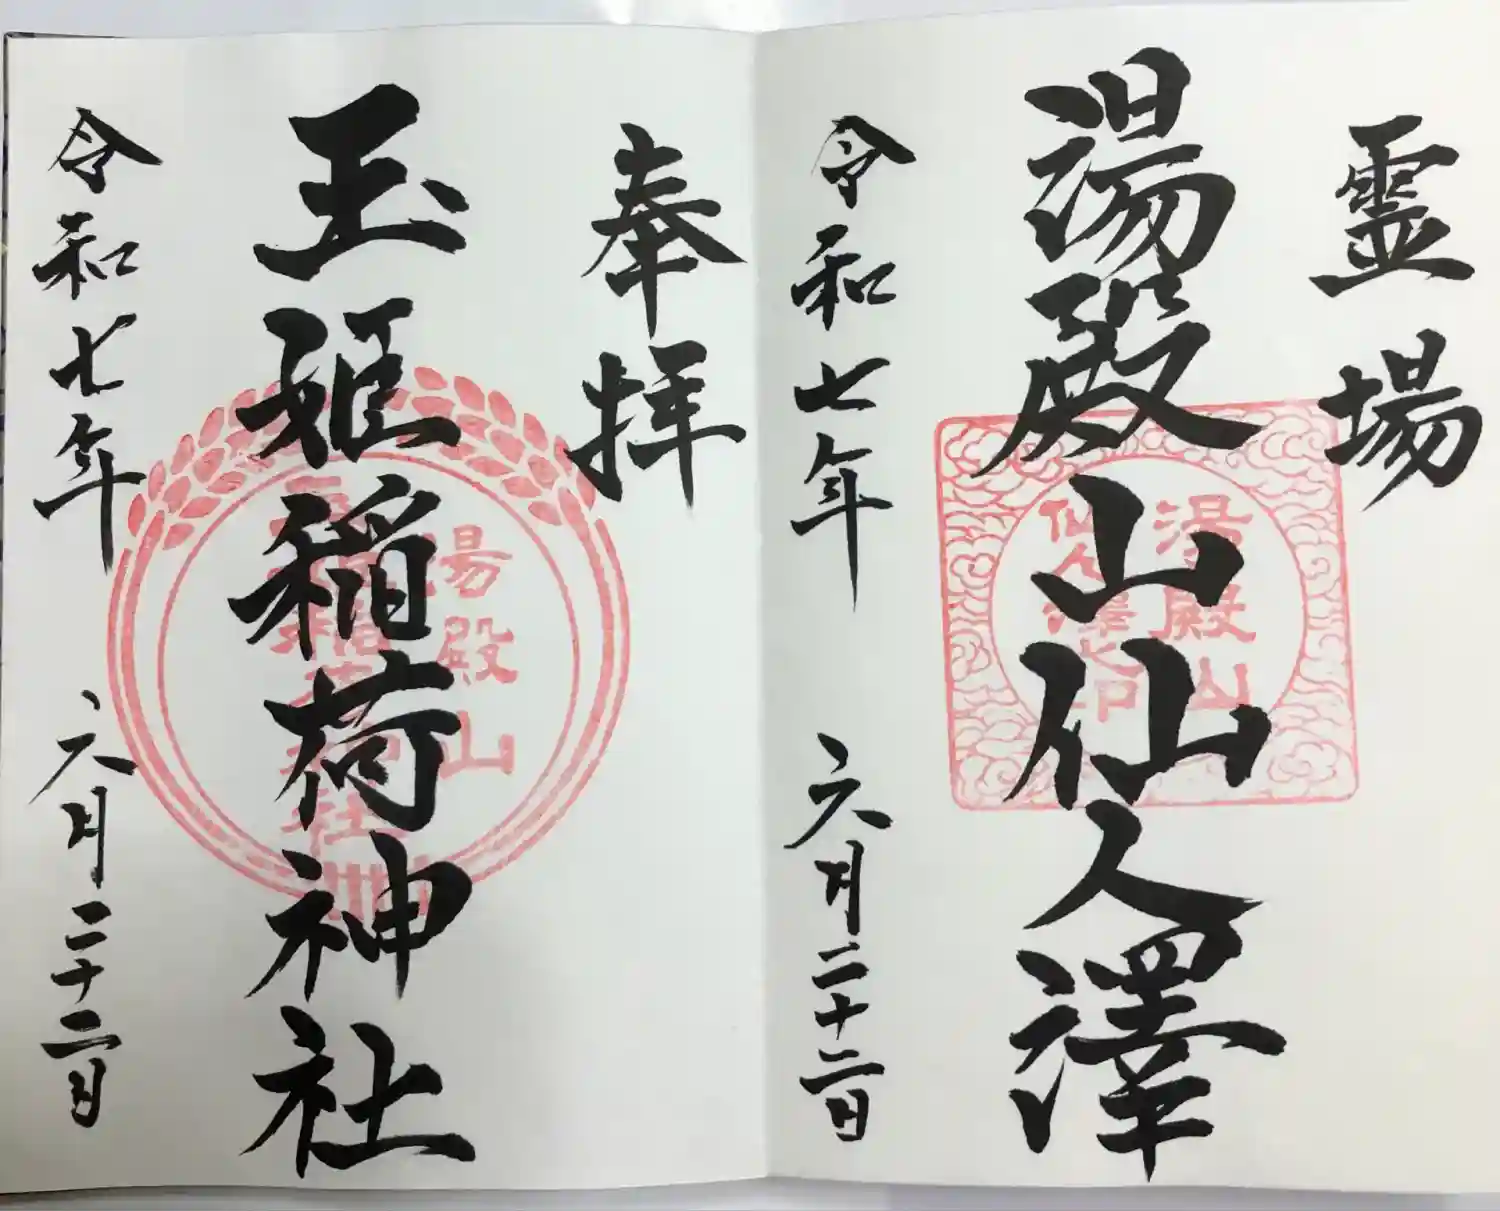 霊場
湯殿山仙人澤
湯殿山
仙人澤之印
令和七年 六月二十二日
奉拝
玉姫稲荷神社
湯殿山
令和七年 六月二十二日